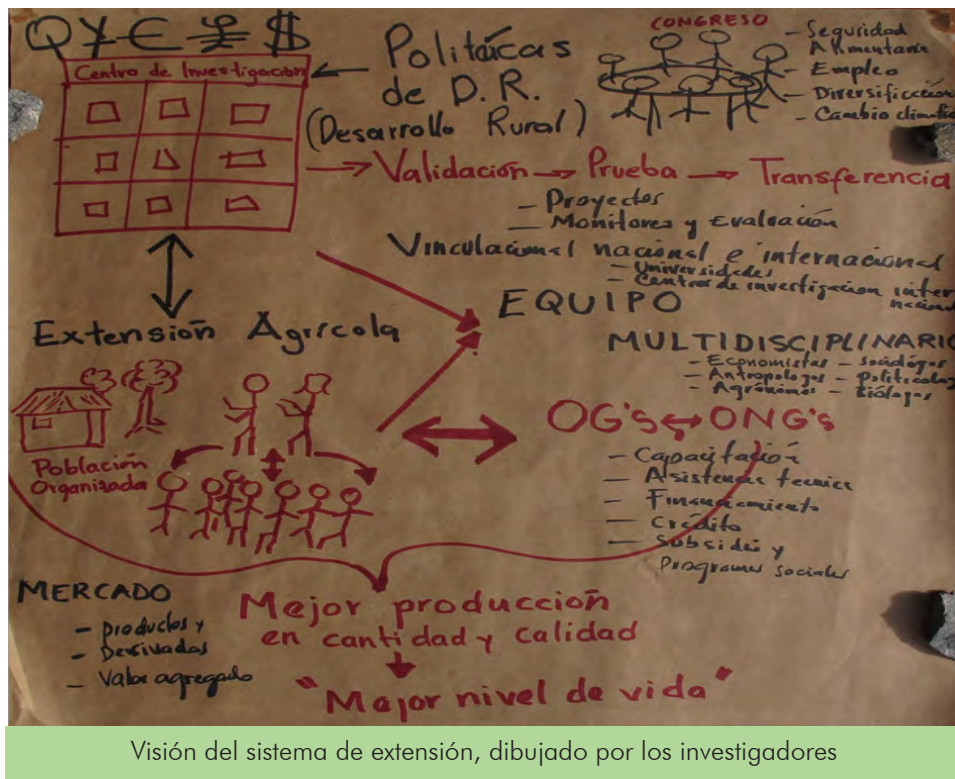 Q ¥ € £ $
Centro de Investigación
← Politáicas
de D.R.
(Desarrollo Rural)
CONGRESO
- Seguridad
Alimentaria
- Empleo
- Diversificación
- Cambio climático
→ Validación → Prueba → Transferencia
- Proyectos
- Monitoreo y Evaluación
Vinculacional nacional e internacional
- Universidades
- Centros de investigacion inter
nacional
EQUIPO
MULTIDISCIPLINARIO
- Economistas - Sociólogos
- Antropologos - Politicologos
- Agrónomos - Biólogos
Extensión Agrícola
Población
Organizada
OG's ↔ ONG's
- Capacitación
- Asistencia tecnica
- Financiamiento
- Crédito
- Subsidio y
Programas sociales
MERCADO
- productos y
- Derivados
- Valor agregado
Mejor produccion
en cantidad y calidad
"Mejor nivel de vida"
Visión del sistema de extensión, dibujado por los investigadores